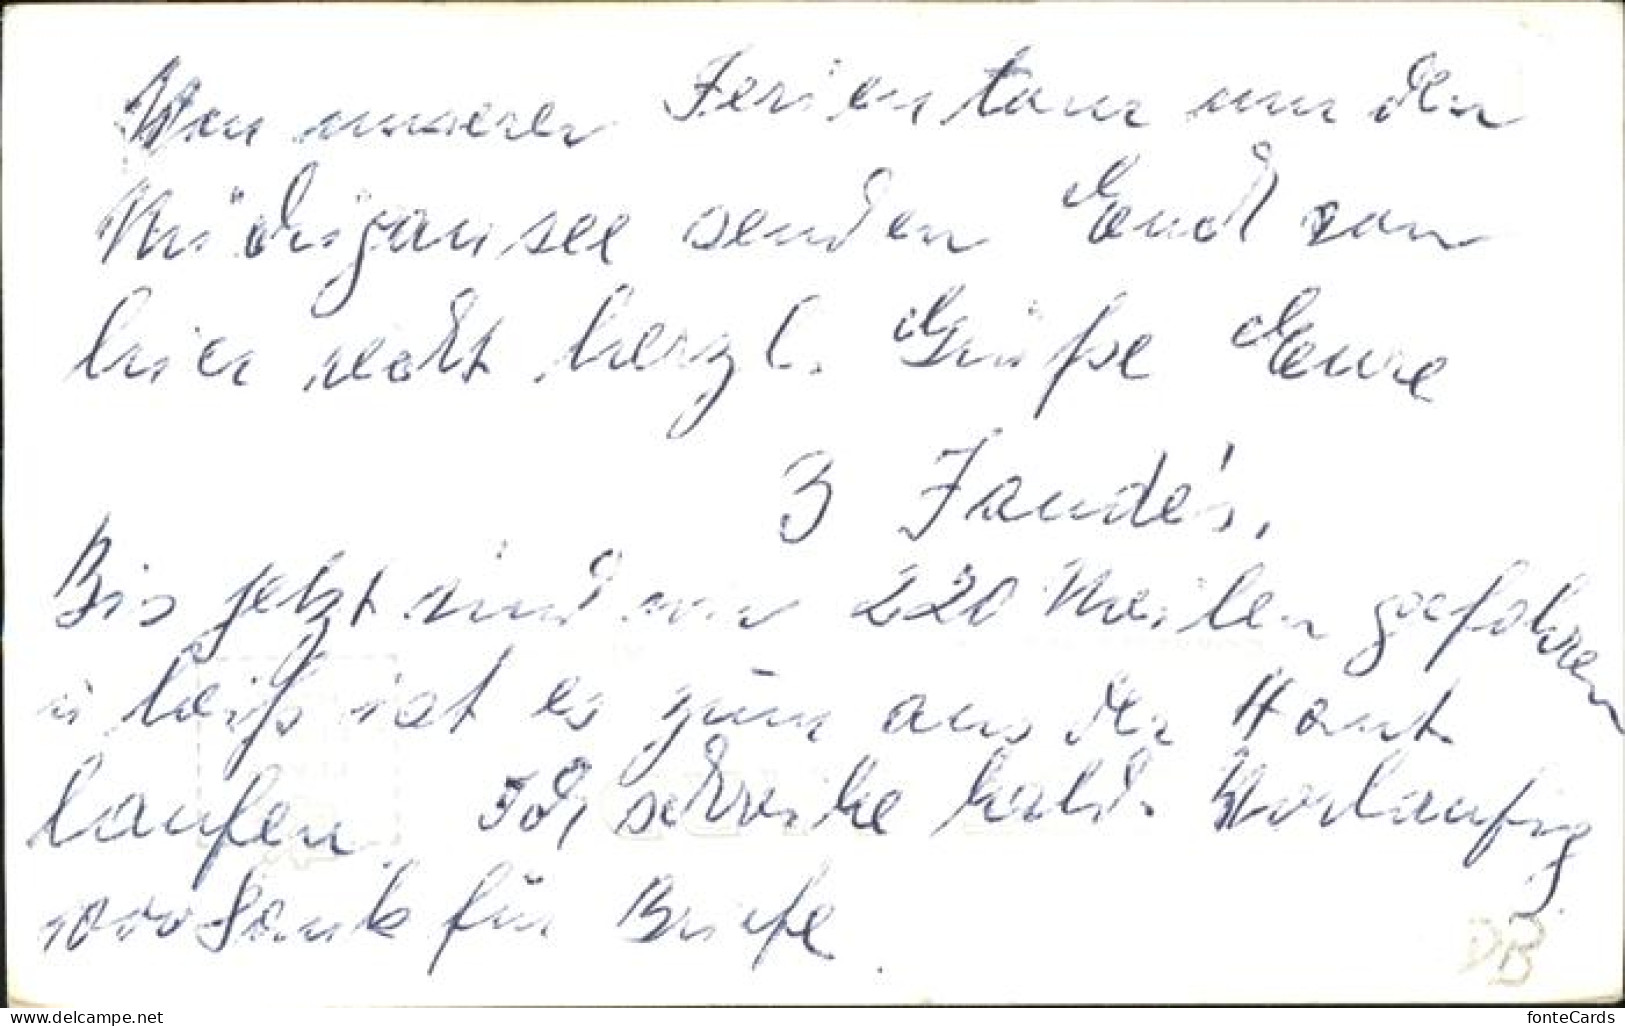 Von unserer Ferientour um den
Michigansee senden Euch von
hier recht herzl. Grüße Eure
3 Jaude's.
Bis jetzt sind wir 220 Meilen gefahren
u heiß ist es zum aus der Haut
laufen. Ich schreibe bald. Vorlaufig
1000 Dank für Briefe.
DB
www.delcampe.net
fonteCards